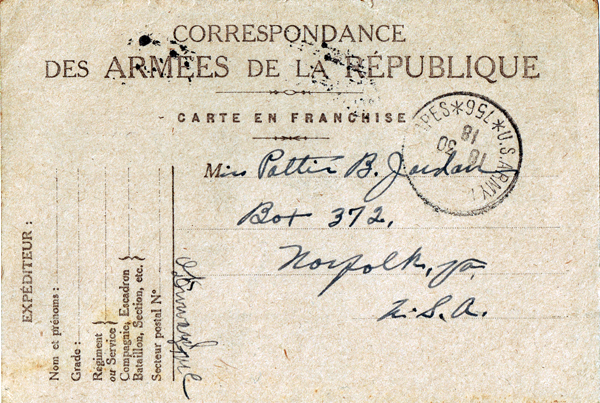 CORRESPONDANCE
DES ARMÉES DE LA RÉPUBLIQUE
CARTE EN FRANCHISE
Miss Pattie B. Jordan
Box 372,
Norfolk, Va.
U.S.A.
*756*U.S. ARMY
30
18
18
EXPÉDITEUR :
Nom et prénoms :
Grade :
Régiment
ou Service
Compagnie, Escadron
Bataillon, Section, etc.
Secteur postal N°